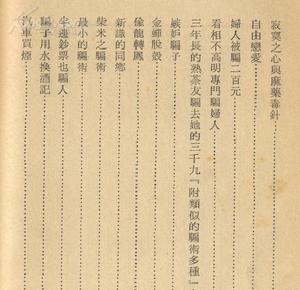 寂寞之心與麻藥毒針
自由戀愛
婦人被騙二百元
看相不高明專門騙婦人
三年長的熟茶友騙去她的三千九『附類似的騙術多種』
嫉妒騙子
金蟬脫殼
偸龍轉鳳
新識的同鄉
柴米之騙術
最小的騙術
半邊鈔票也騙人
騙子用水換酒記
汽車買煙